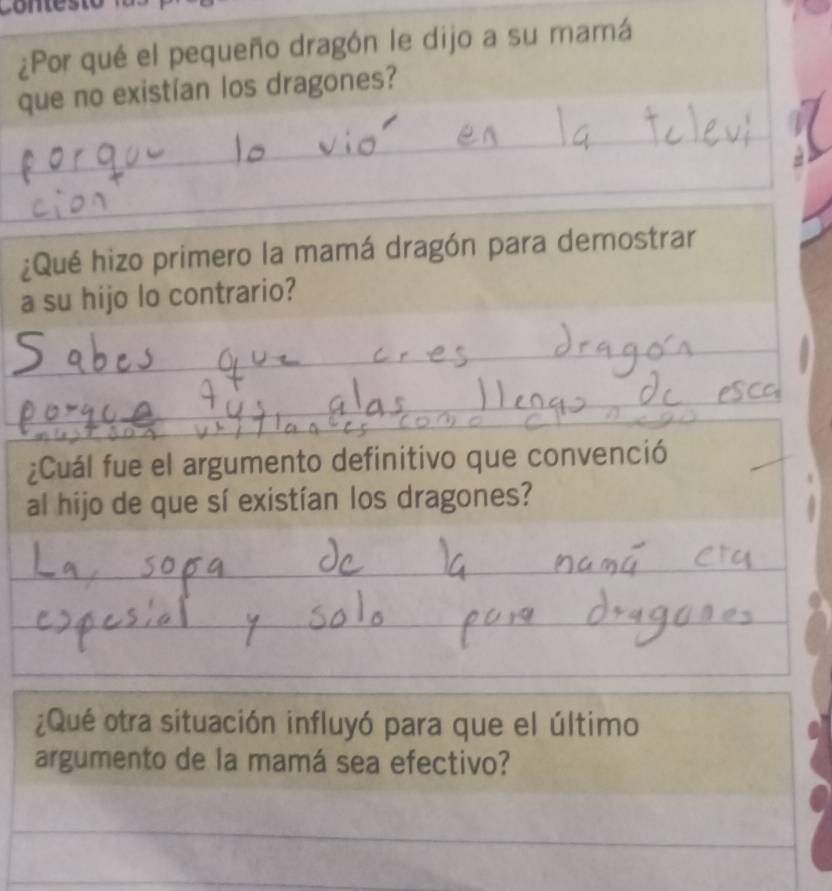 Contesto las
¿Por qué el pequeño dragón le dijo a su mamá
que no existían los dragones?
porque lo vio en la televi
cion
¿Qué hizo primero la mamá dragón para demostrar
a su hijo lo contrario?
Sabes que eres dragón
porque tus alas llenas de esca
como
¿Cuál fue el argumento definitivo que convenció
al hijo de que sí existían los dragones?
La sopa de la mamá era
espesial y solo para dragones
¿Qué otra situación influyó para que el último
argumento de la mamá sea efectivo?